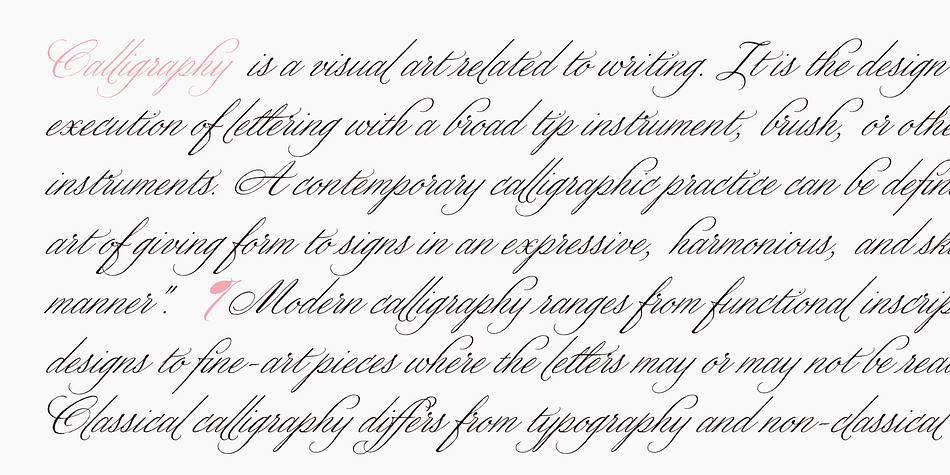 Calligraphy is a visual art related to writing. It is the design
execution of lettering with a broad tip instrument, brush, or othe
instruments. A contemporary calligraphic practice can be defin
art of giving form to signs in an expressive, harmonious, and sk
manner". ¶ Modern calligraphy ranges from functional inscrip
designs to fine-art pieces where the letters may or may not be read
Classical calligraphy differs from typography and non-classical